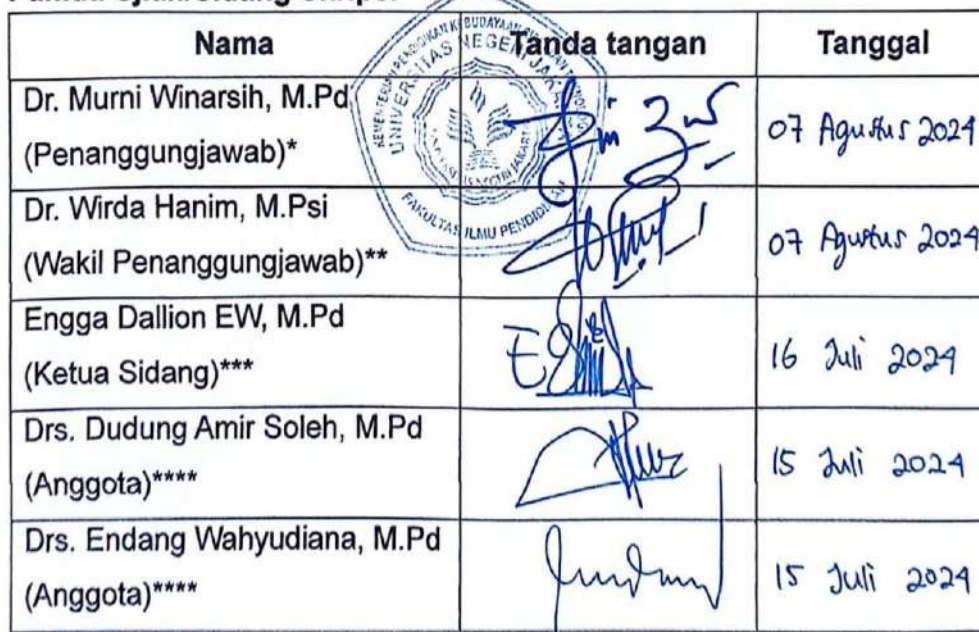 Nama Tanda tangan Tanggal
Dr. Murni Winarsih, M.Pd
(Penanggungjawab)* 07 Agustus 2024
Dr. Wirda Hanim, M.Psi
(Wakil Penanggungjawab)** 07 Agustus 2024
Engga Dallion EW, M.Pd
(Ketua Sidang)*** 16 Juli 2024
Drs. Dudung Amir Soleh, M.Pd
(Anggota)**** 15 Juli 2024
Drs. Endang Wahyudiana, M.Pd
(Anggota)**** 15 Juli 2024
UNIVERSITAS NEGERI JAKARTA
FAKULTAS ILMU